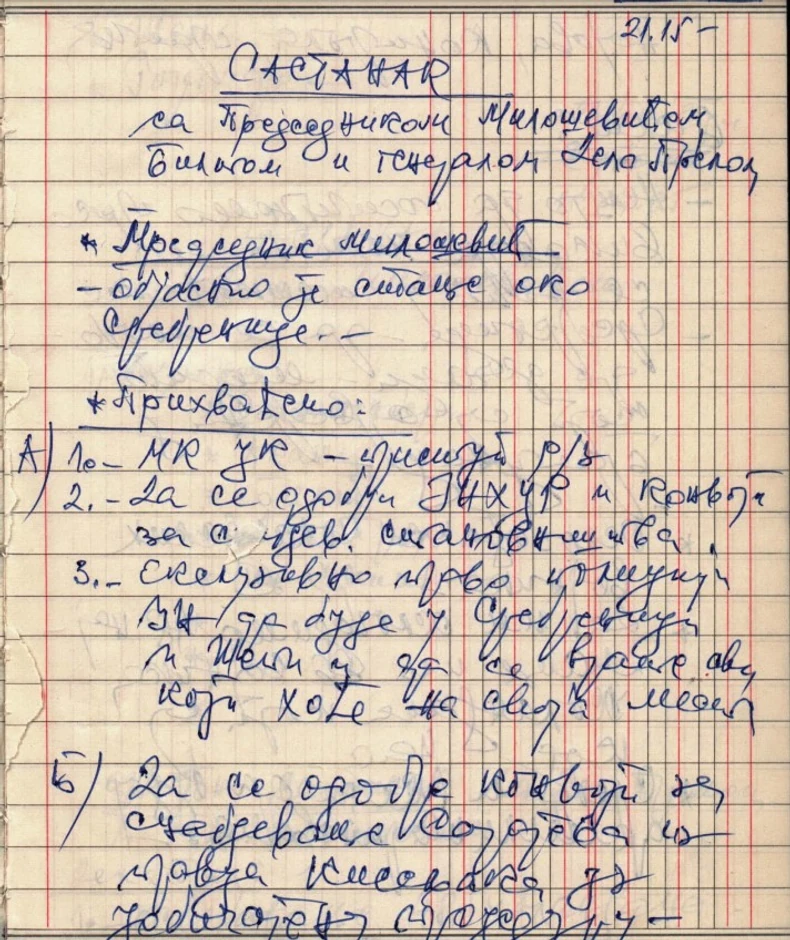 21.15 -
САСТАНАК
са Председником Милошевићем
Билтом и генералом Де ла Преслом
* Председник Милошевић
- објаснио је стање око
Сребренице. -
* Прихваћено:
А) 1. - МК ЦК - приступ р/з
2. - Да се одобри УНХЦР и конвоји
за снабдев. становништва.
3. - ексклузивно право
УН да буде у Сребреници
и Жепи и да се врате сви
који хоће на своја места
Б) Да се одобре конвоји за
снабдевање Сарајева из
правца Кисељака уз
уобичајену процедуру -